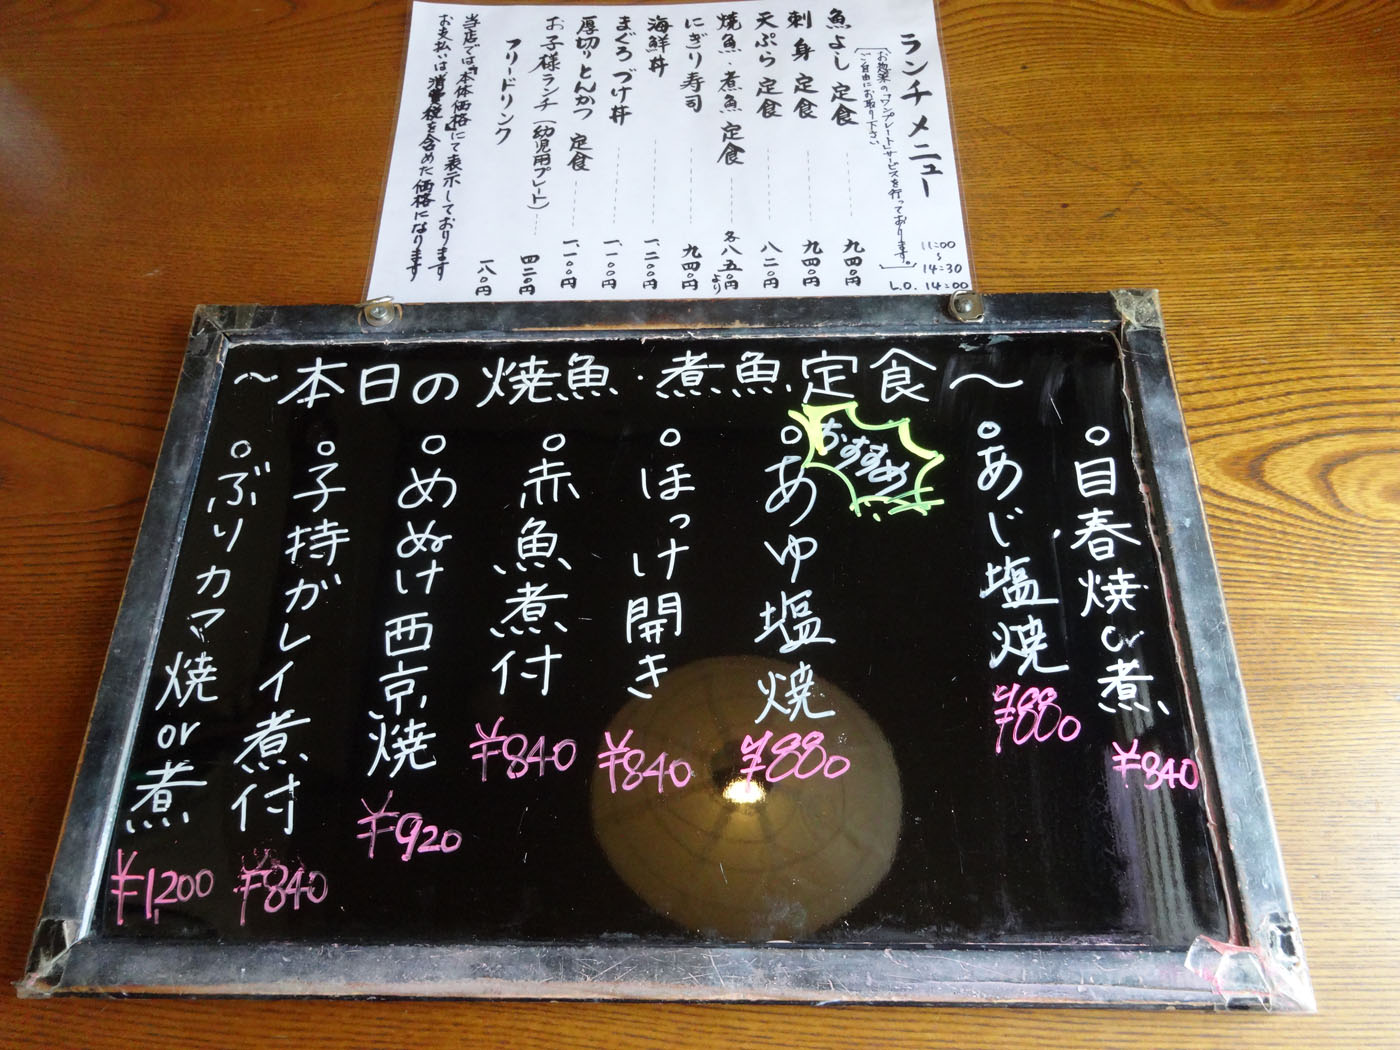 ランチメニュー
11:00
〜
14:30
L.O. 14:00
お惣菜の「ワンプレート」サービスを行っております。
ご自由にお取り下さい
魚よし定食 九四〇円
刺身定食 九四〇円
天ぷら定食 八二〇円
焼魚・煮魚定食 各八五〇円より
にぎり寿司 九四〇円
海鮮丼 一、二〇〇円
まぐろづけ丼 一、一〇〇円
厚切りとんかつ定食 一、一〇〇円
お子様ランチ(幼児用プレート) 四二〇円
フリードリンク 一八〇円
当店では「本体価格」にて表示しております
お支払いは消費税を含めた価格になります
〜本日の焼魚・煮魚定食〜
○目春焼or煮 ¥840
○あじ塩焼 ¥880
おすすめ
○あゆ塩焼 ¥880
○ほっけ開き ¥840
○赤魚煮付 ¥840
○めぬけ西京焼 ¥920
○子持ガレイ煮付 ¥840
○ぶりカマ焼or煮 ¥1,200